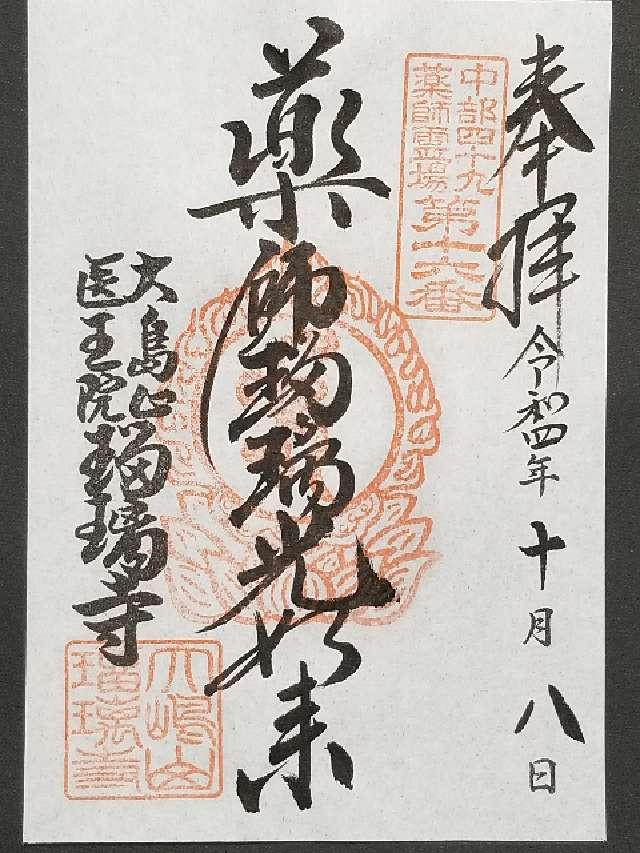 奉拝
令和四年十月八日
中部四十九
薬師霊場
第十六番
薬師瑠璃光如来
大島山
医王院
瑠璃寺
大嶋山
瑠璃寺